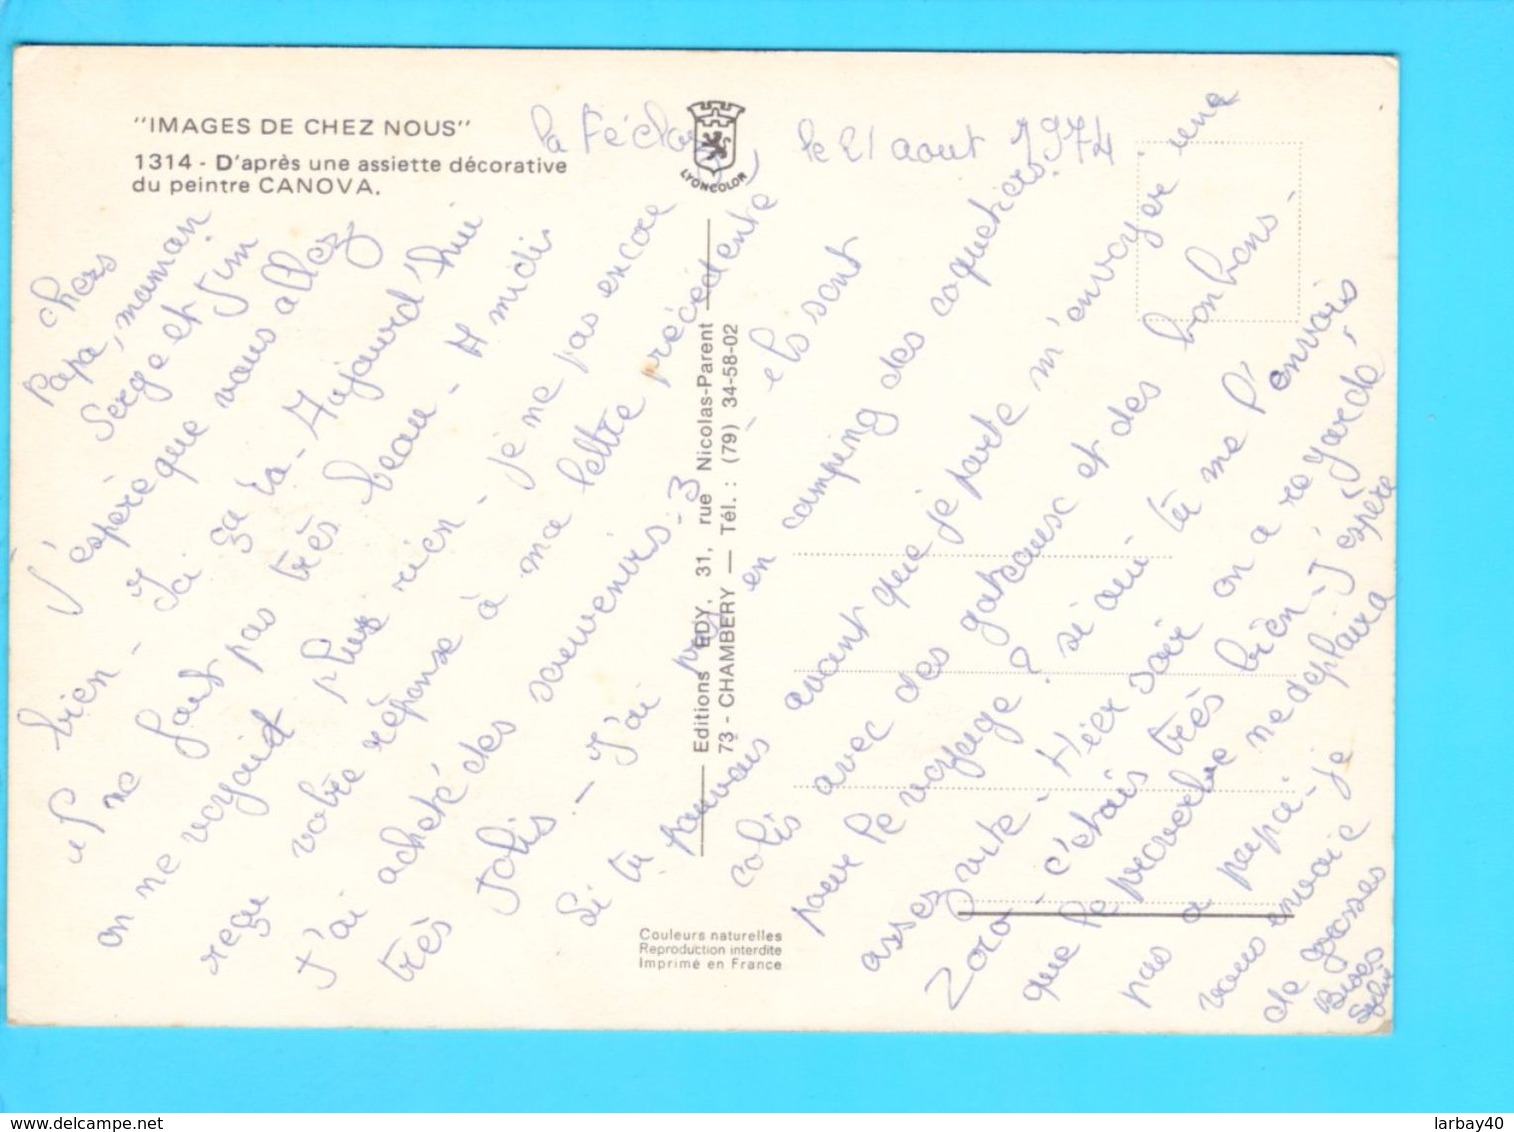 "IMAGES DE CHEZ NOUS"
1314 - D'après une assiette décorative
du peintre CANOVA.
LYONCOLOR
la Féclaz, le 21 aout 1974
chers
Papa, maman
Serge et Jim
J'espère que vous allez
bien - Ici ça va - Aujourd'hui
il ne fait pas très beau - A midi
on ne voyait plus rien - je ne pas encore
reçu votre réponse à ma lettre précédente
J'ai acheté des souvenirs - 3 - els sont
très Jolis - J'ai en camping des coquetiers.
Si tu pouvais avant que je parte m'envoyer une
colis avec des gateausc et des bonbons -
pour le voyage ? si oui tu me l'envois
assez vite - Hier soir on a regardé
Zoro - c'étais très bien - J'espère
que le proverbe ne deplaira
pas a papa - je
vous envoie
de grosses
Bises
Sylvie
Editions EDY, 31, rue Nicolas-Parent
73 - CHAMBERY — Tél. : (79) 34-58-02
Couleurs naturelles
Reproduction interdite
Imprimé en France
delcampe.net
larbay40